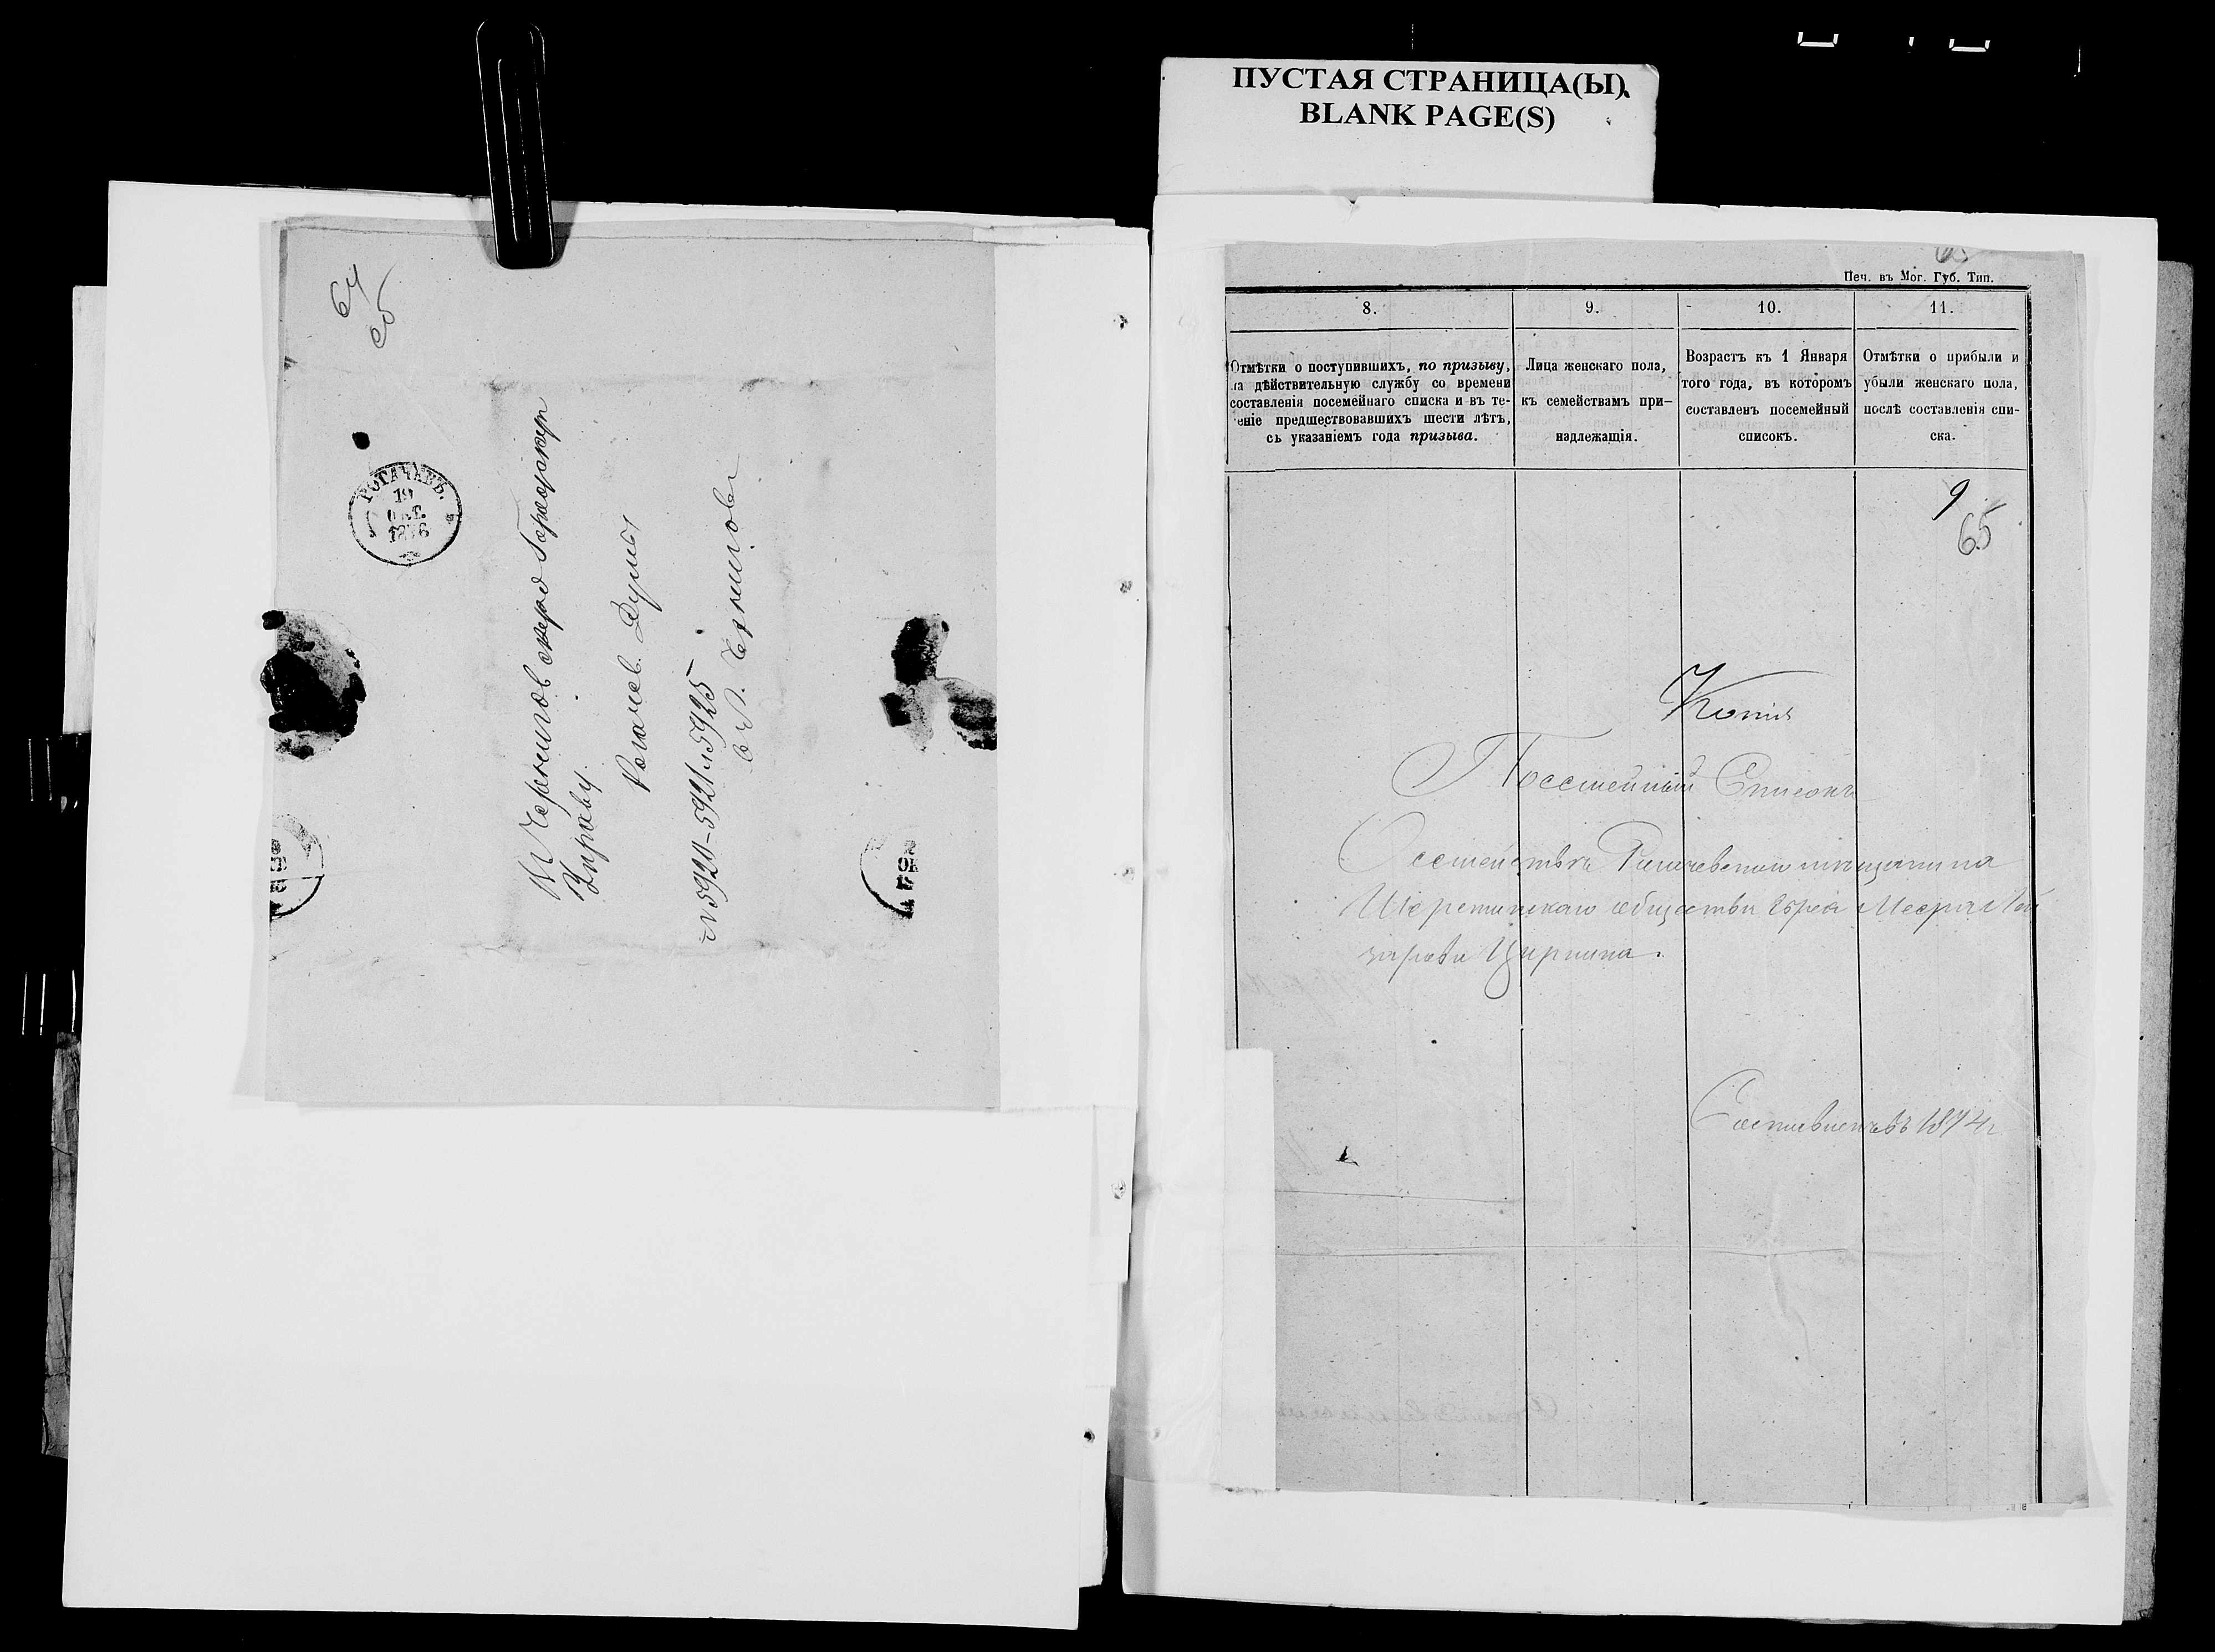 ПУСТАЯ СТРАНИЦА(Ы)
BLANK PAGE(S)
64
об
РОГАЧЕВЪ.
19
ОКТ.
1876
Въ Чернигов скую Городскую
Управу.
Рогачев. Думы
№ 5920-5921 и 5925
въ г. Чернигов
65
Печ. въ Мог. Губ. Тип.
8.
9.
10.
11.
Отмѣтки о поступившихъ, по призыву,
на дѣйствительную службу со времени
составленія посемейнаго списка и въ те-
ченіе предшествовавшихъ шести лѣтъ,
съ указаніемъ года призыва.
Лица женскаго пола,
къ семействамъ при-
надлежащія.
Возрастъ къ 1 Января
того года, въ которомъ
составленъ посемейный
списокъ.
Отмѣтки о прибыли и
убыли женскаго пола,
послѣ составленія спи-
ска.
9
65
Копія
Посемейный Списокъ
О семействѣ Рогачевскаго мѣщанина
общества Еврея
Цирлина.
Составленъ въ 1874 г